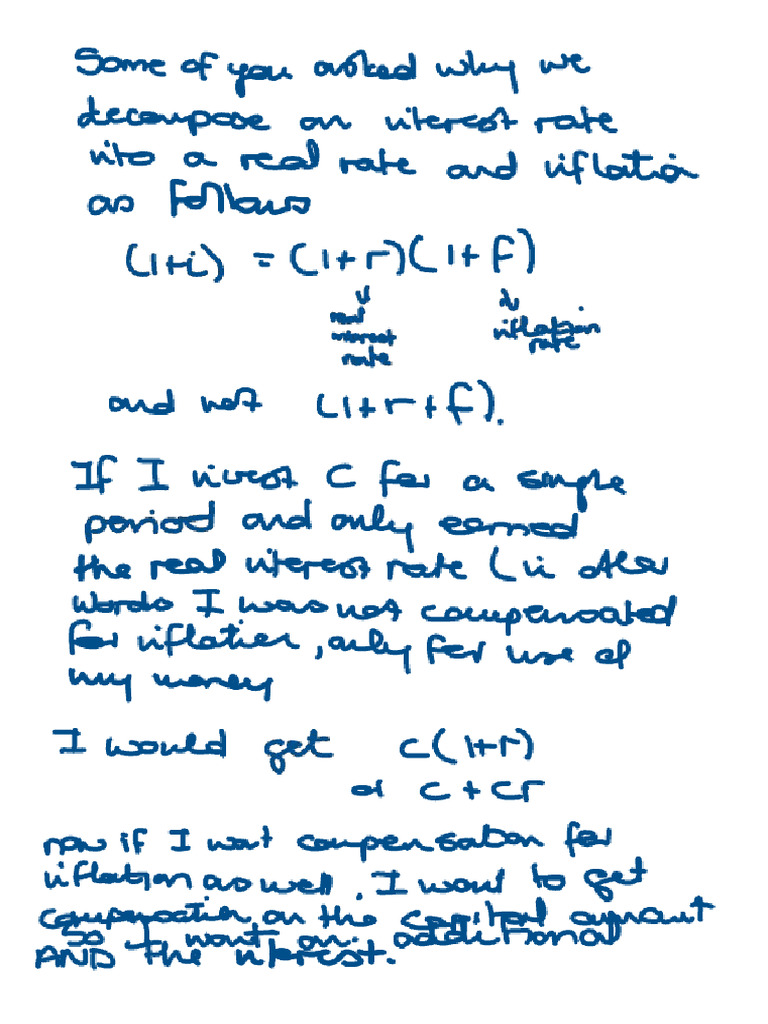 Some of you asked why we
decompose an interest rate
into a real rate and inflation
as follows
(1+i) = (1+r)(1+f)
real interest rate
inflation rate
and not (1+r+f).
If I invest C for a single
period and only earned
the real interest rate (in other
words I was not compensated
for inflation, only for use of
my money
I would get C(1+r)
or C + Cr
now if I want compensation for
inflation as well. I want to get
compensation on the capital amount
so I want an additional
AND the interest.